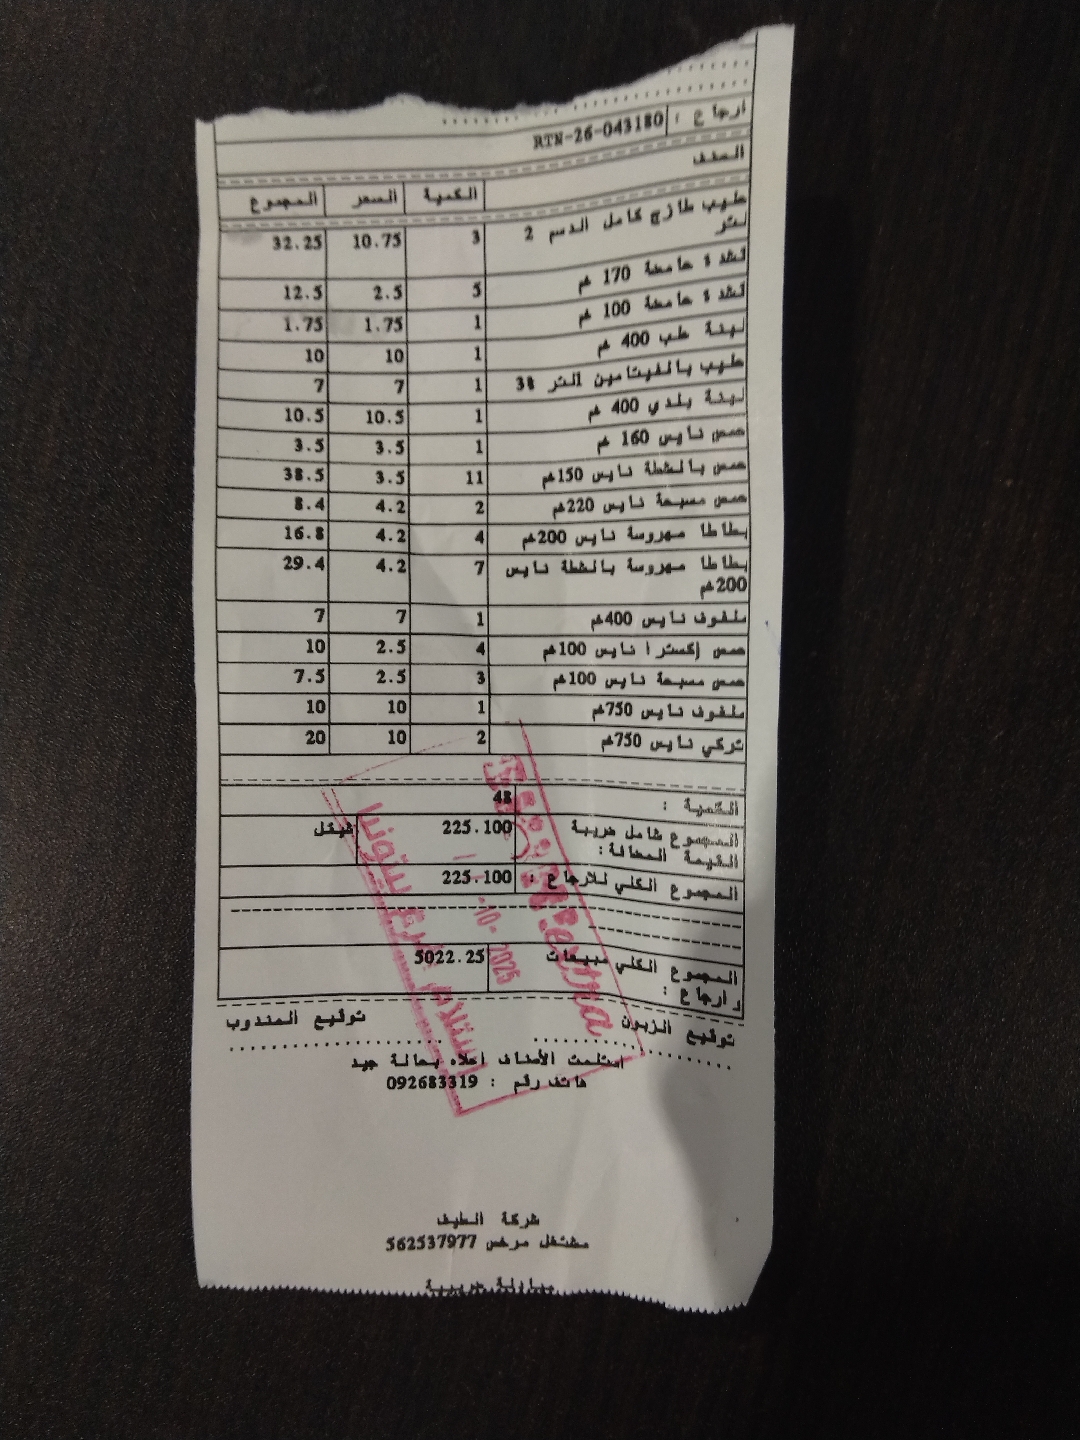 ارجاع : RTN-26-043180
الصنف
الكمية السعر المجموع
حليب طازج كامل الدسم 2 لتر 3 10.75 32.25
قشدة حامضة 170 غم 5 2.5 12.5
قشدة حامضة 100 غم 1 1.75 1.75
لبنة علب 400 غم 1 10 10
حليب بالفيتامين التر 3% 1 7 7
لبنة بلدي 400 غم 1 10.5 10.5
حمص نايس 160 غم 1 3.5 3.5
حمص بالشطة نايس 150غم 11 3.5 38.5
حمص مسبحة نايس 220غم 2 4.2 8.4
بطاطا مهروسة نايس 200غم 4 4.2 16.8
بطاطا مهروسة بالشطة نايس 200غم 7 4.2 29.4
ملفوف نايس 400غم 1 7 7
حمص إكسترا نايس 100غم 4 2.5 10
حمص مسبحة نايس 100غم 3 2.5 7.5
ملفوف نايس 750غم 1 10 10
تركي نايس 750غم 2 10 20
الكمية : 48
المجموع شامل ضريبة القيمة المضافة : 225.100 شيكل
المجموع الكلي للارجاع : 225.100
المجموع الكلي مبيعات و ارجاع : 5022.25
توقيع الزبون توقيع المندوب
استلمت الأصناف أعلاه بحالة جيد
هاتف رقم : 092683319
شركة الطيف
مشتغل مرخص 562537977
-10- 2025